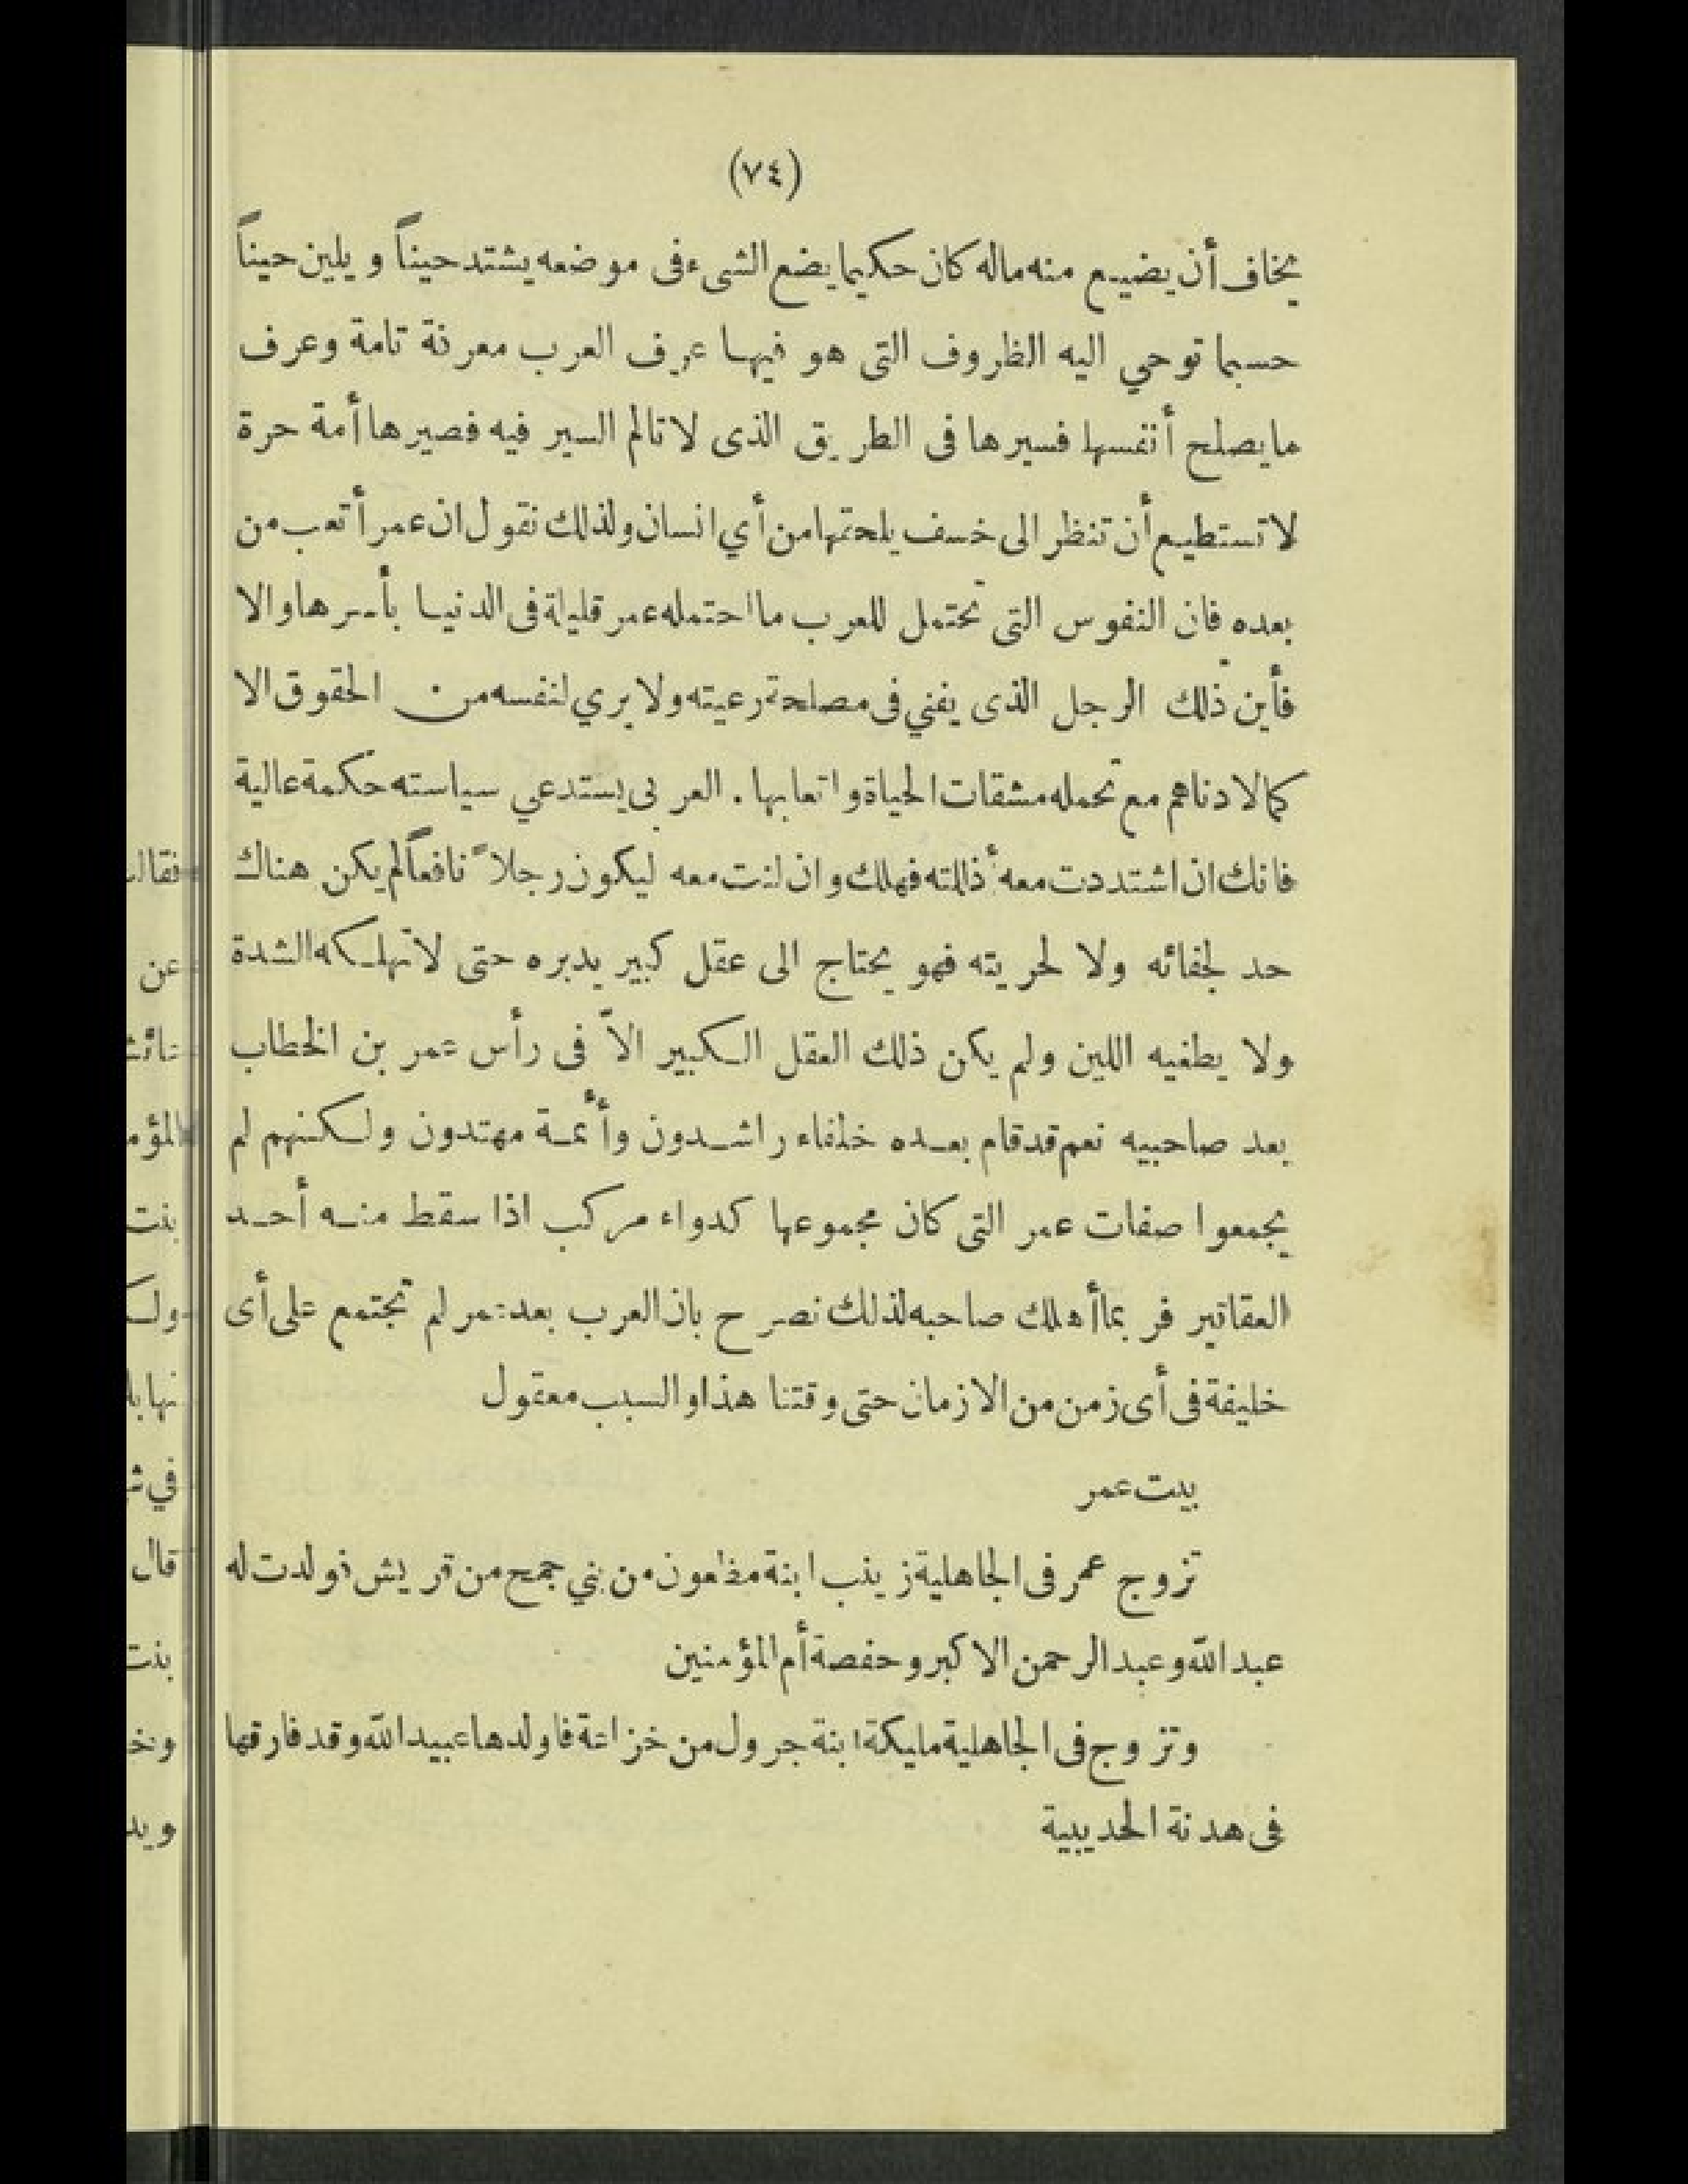 (٧٤)
يخاف أن يضيع منه ماله كان حكيما يضع الشىء فى موضعه يشتد حيناً و يلين حيناً
حسبما توحي اليه الظروف التى هو فيها عرف العرب معرفة تامة وعرف
ما يصلح أنفسها فسيرها فى الطريق الذى لا تألم السير فيه فصيرها أمة حرة
لا تستطيع أن تنظر الى خسف يلحقها من أي انسان ولذلك نقول ان عمر أتعب من
بعده فان النفوس التى تحتمل للعرب ما احتمله عمر قليلة فى الدنيا بأسرها والا
فأين ذلك الرجل الذى يفني فى مصلحة رعيته ولا يري لنفسه من الحقوق الا
كما لادناهم مع تحمله مشقات الحياة و اتعابها . العربى يستدعي سياسته حكمة عالية
فانك ان اشتددت معه أذللته فهلك وان لنت معه ليكون رجلاً نافعاً لم يكن هناك
حد لجفائه ولا لحريته فهو يحتاج الى عقل كبير يدبره حتى لا تهلكه الشدة
ولا يطغيه اللين ولم يكن ذلك العقل الكبير الاّ فى رأس عمر بن الخطاب
بعد صاحبيه نعم قد قام بعده خلفاء راشدون وأئمة مهتدون ولكنهم لم
يجمعوا صفات عمر التى كان مجموعها كدواء مركب اذا سقط منه أحد
العقاقير فربما أهلك صاحبه لذلك نصرح بان العرب بعد عمر لم تجتمع على أى
خليفة فى أى زمن من الازمان حتى وقتنا هذا والسبب معقول
بيت عمر
تزوج عمر فى الجاهلية زينب ابنة مظعون من بني جمح من قريش فولدت له
عبد الله وعبد الرحمن الاكبر وحفصة أم المؤمنين
وتزوج فى الجاهلية مليكة ابنة جرول من خزاعة فاولدها عبيد الله وقد فارقها
فى هدنة الحديبية